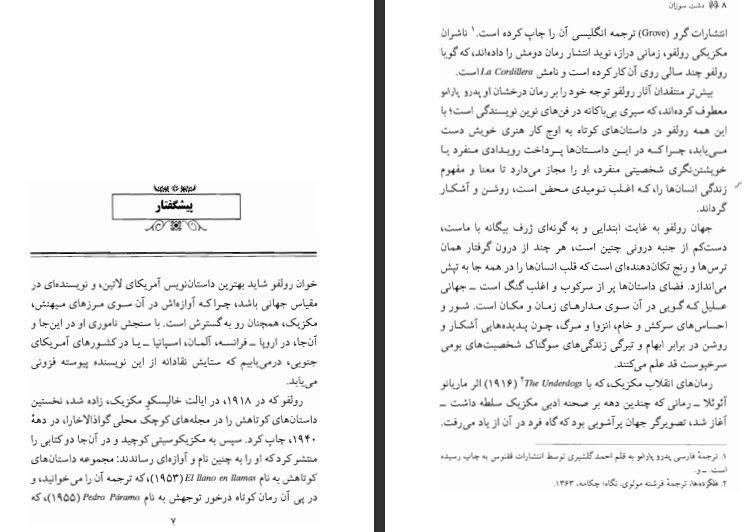 پیشگفتار
خوان رولفو شاید بهترین داستان‌نویس آمریکای لاتین، و نویسنده‌ای در
مقیاس جهانی باشد، چرا که آوازه‌اش در آن سوی مرزهای میهنش،
مکزیک، همچنان رو به گسترش است. با سنجش ناموری او در این‌جا و
آن‌جا، در اروپا ـ فرانسه، آلمان، اسپانیا ـ یا در کشورهای آمریکای
جنوبی، درمی‌یابیم که ستایش نقادانه از این نویسنده پیوسته فزونی
می‌یابد.
رولفو که در ۱۹۱۸، در ایالت خالیسکوِ مکزیک، زاده شد، نخستین
داستان‌های کوتاهش را در مجله‌های کوچک محلی گواذالاخارا، در دههٔ
۱۹۴۰، چاپ کرد. سپس به مکزیکوسیتی کوچید و در آن‌جا دو کتابی را
منتشر کرد که او را به چنین نام و آوازه‌ای رساندند: مجموعه داستان‌های
کوتاهش به نام El llano en llamas (۱۹۵۳)، که ترجمه آن را می‌خوانید، و
در پی آن رمان کوتاه درخور توجهش به نام Pedro Páramo (۱۹۵۵)، که
۷
۸ دشت سوزان
انتشارات گرو (Grove) ترجمه انگلیسی آن را چاپ کرده است.۱ ناشران
مکزیکی رولفو، زمانی دراز، نوید انتشار رمان دومش را داده‌اند، که گویا
رولفو چند سالی روی آن کار کرده است و نامش La Cordillera است.
بیش‌تر منتقدان آثار رولفو توجه خود را بر رمان درخشان او پدرو پارامو
معطوف کرده‌اند، که سیری بی‌باکانه در فن‌های نوین نویسندگی است؛ با
این همه رولفو در داستان‌های کوتاه به اوج کار هنری خویش دست
می‌یابد، چرا که در این داستان‌ها پرداخت رویدادی منفرد یا
خویشتن‌نگری شخصیتی منفرد، او را مجاز می‌دارد تا معنا و مفهوم
زندگی انسان‌ها را، که اغلب نومیدی محض است، روشن و آشکار
گرداند.
جهان رولفو به غایت ابتدایی و به گونه‌ای ژرف بیگانه با ماست،
دست‌کم از جنبه درونی چنین است، هر چند از درون گرفتار همان
ترس‌ها و رنج تکان‌دهنده‌ای است که قلب انسان‌ها را در همه جا به تپش
می‌اندازد. فضای داستان‌ها پر از سرکوب و اغلب گنگ است ـ جهانی
علیل که گویی در آن سوی مدارهای زمان و مکان است. شور و
احساس‌های سرکش و خام، انزوا و مرگ، چون پدیده‌هایی آشکار و
روشن در برابر ابهام و تیرگی زندگی‌های سوگناک شخصیت‌های بومی
سرخپوست قد علم می‌کنند.
رمان‌های انقلاب مکزیک، که با The Underdogs۲ (۱۹۱۶) اثر ماریانو
آثوئلا ـ رمانی که چندین دهه بر صحنه ادبی مکزیک سلطه داشت ـ
آغاز شد، تصویرگر جهان پرآشوبی بود که گاه فرد در آن از یاد می‌رفت.
۱. ترجمهٔ فارسی پدرو پارامو به قلم احمد گلشیری توسط انتشارات ققنوس به چاپ رسیده
است. ـ و.
۲. فلکزده‌ها، ترجمهٔ فرشته مولوی. نگاه؛ چکامه، ۱۳۶۳.